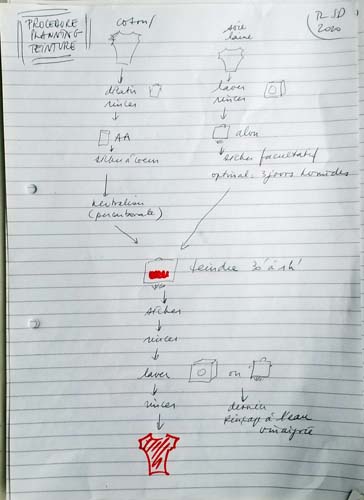 PROCEDURE
PLANNING
TEINTURE
TL SD
2020
coton
soie
laine
rincer
laver
rincer
AA
alun
sécher à coeur
sécher facultatif
optimal = 3 jours humides
neutralisation
(percarbonate)
teindre 30' à 1h
sécher
rincer
laver ou
rincer
dernier
rinçage à l'eau
vinaigrée